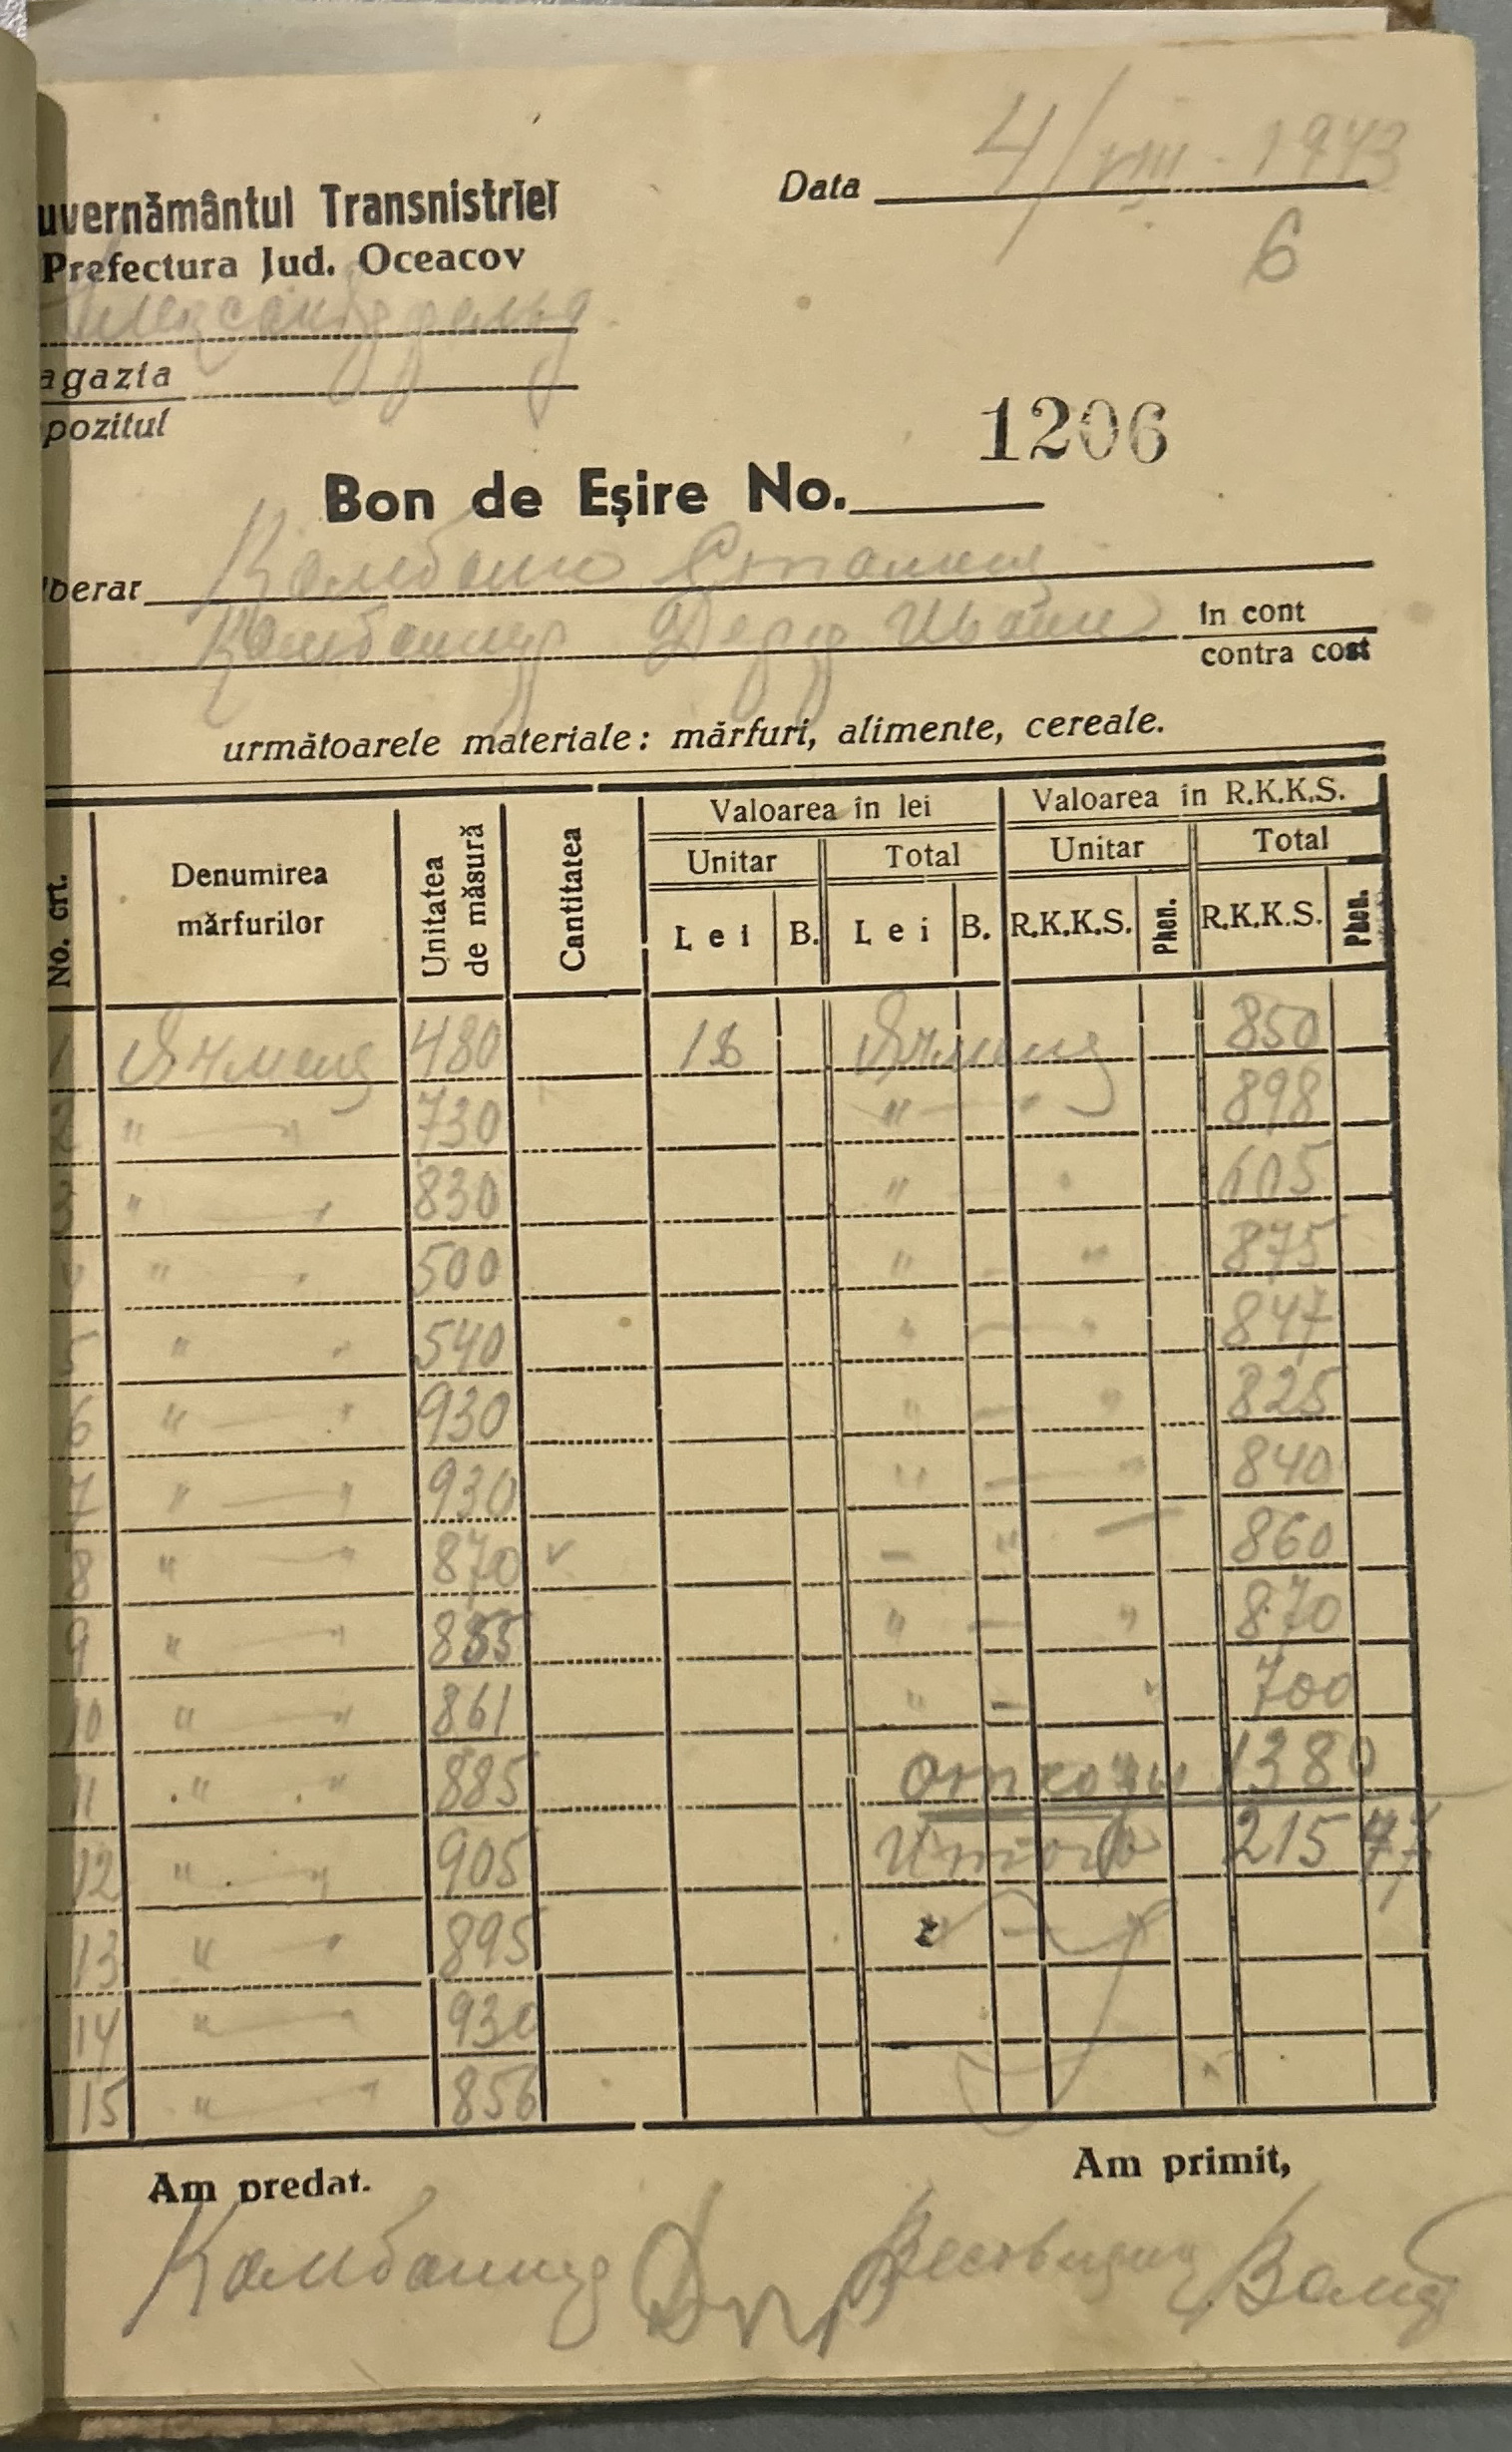 uvernământul Transnistriei
Data 4/VIII. 1943
Prefectura Jud. Oceacov
6
Александрфельд
agazia
pozitul
1206
Bon de Eşire No.
berat Комбайн Сталинец
Комбайнер Дерр Иван in cont
contra cost
următoarele materiale: mărfuri, alimente, cereale.
No. crt. Denumirea mărfurilor Unitatea de măsură Cantitatea Valoarea în lei Valoarea în R.K.K.S.
Unitar Total Unitar Total
Lei B. Lei B. R.K.K.S. Phen. R.K.K.S. Phen.
1 Ячмень 480 16 Ячмень 850
2 " — " 730 " — " 898
3 " — " 830 " — " 605
4 " — " 500 " — " 875
5 " — " 540 " — " 847
6 " — " 930 " — " 825
7 " — " 930 " — " 840
8 " — " 870 ✓ — " — 860
9 " — " 855 " — " 870
10 " — " 861 " — " 700
11 " — " 885 отходы 1380
12 " — " 905 Итого 21577
13 " — " 895
14 " — " 930
15 " — " 856
Am predat.
Am primit,
Комбайнер Весовщик